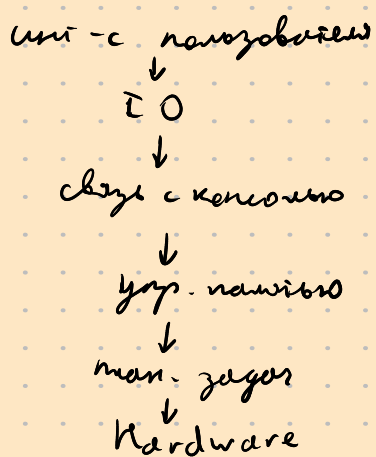 инт-с пользователя
↓
IO
↓
связь с консолью
↓
упр. памятью
↓
план. задач
↓
Hardware